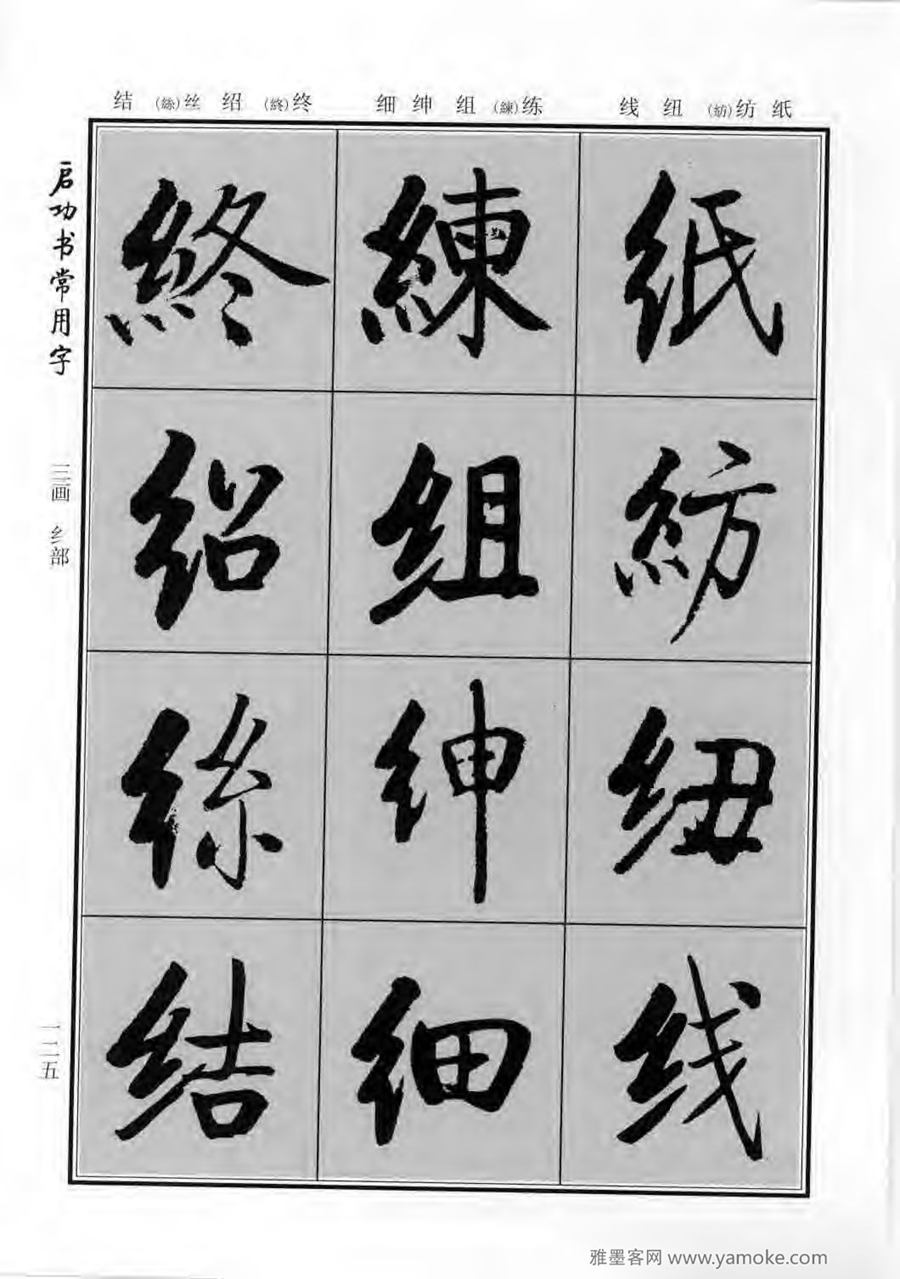 结 (絲)丝 绍 (終)终
细 绅 组 (練)练
线 纽 (紡)纺 纸
启功书常用字
三画 纟部
一二五
終 練 纸
绍 组 紡
絲 绅 纽
结 细 线
雅墨客网 www.yamoke.com